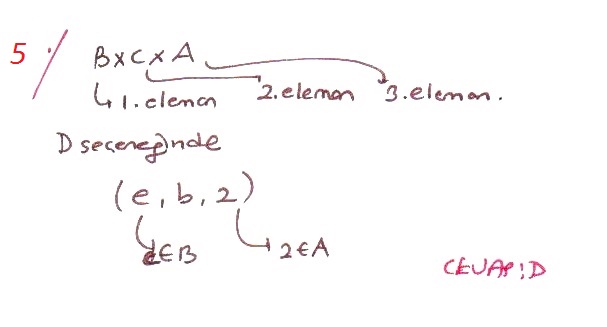 5 / BxCxA
1.eleman 2.eleman 3.eleman.
D seçeneğinde
(e, b, 2)
e∈B 2∈A
CEVAP:D